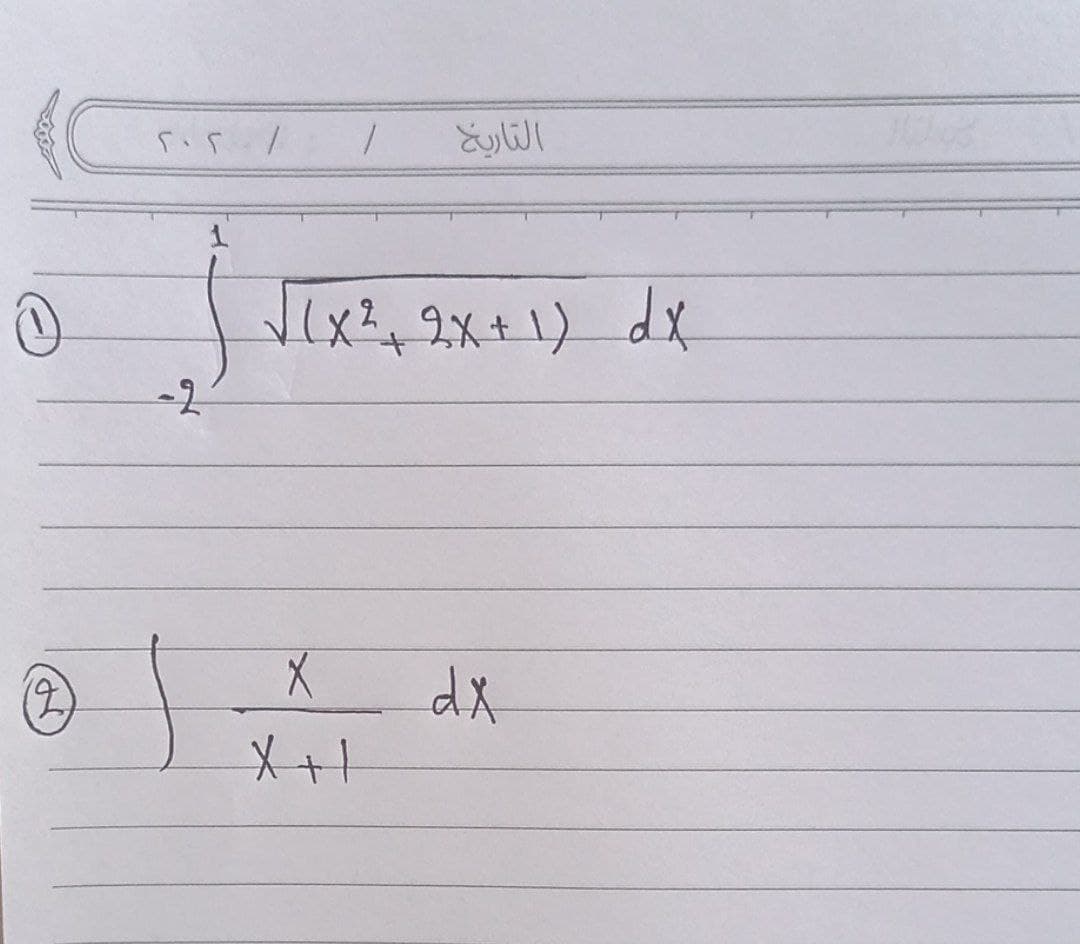 التاريخ / / ٢٠٢
① ∫₋₂¹ √(x²+2x+1) dx
② ∫ x/(x+1) dx